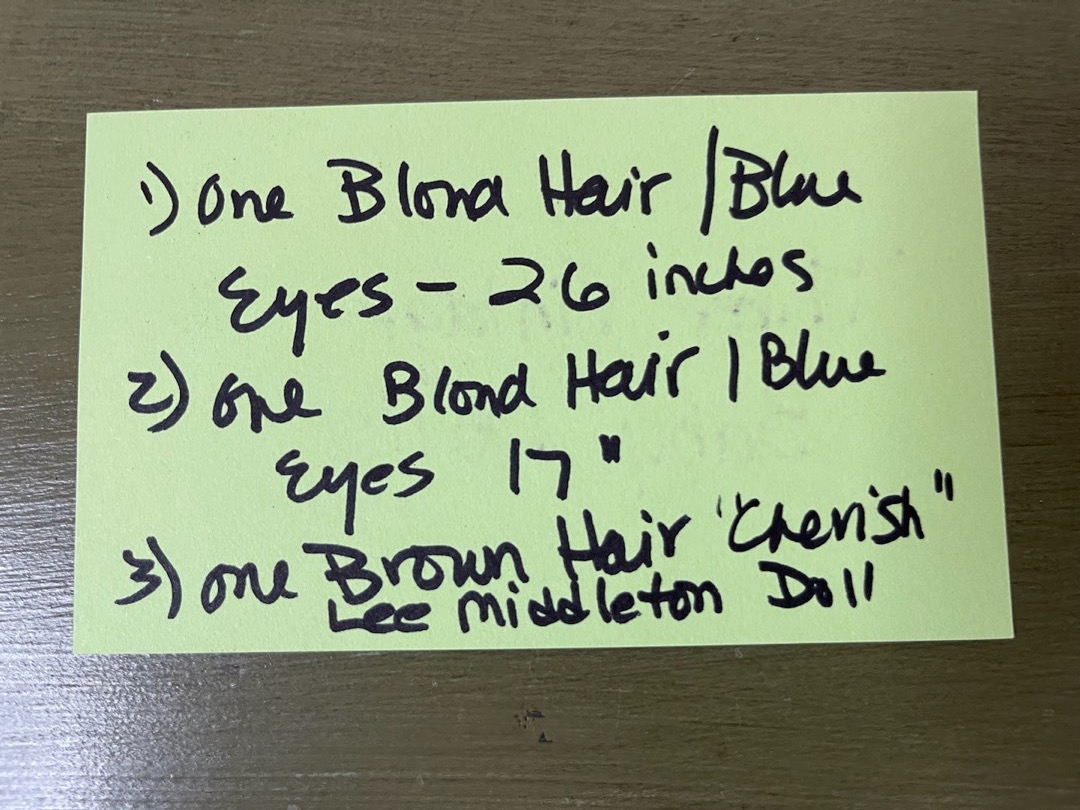 1) One Blond Hair / Blue
Eyes - 26 inches
2) One Blond Hair / Blue
Eyes 17"
3) one Brown Hair "Cherish"
Lee Middleton Doll